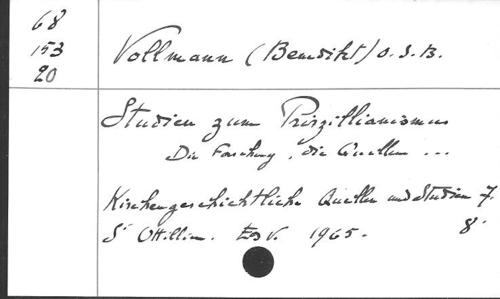 68
153
20
Vollmann (Benedikt) O.S.B.
Studien zum Priszillianismus
Die Forschung, die Quellen ...
Kirchengeschichtliche Quellen und Studien 7.
St Ottilien. Eos V. 1965. 8°